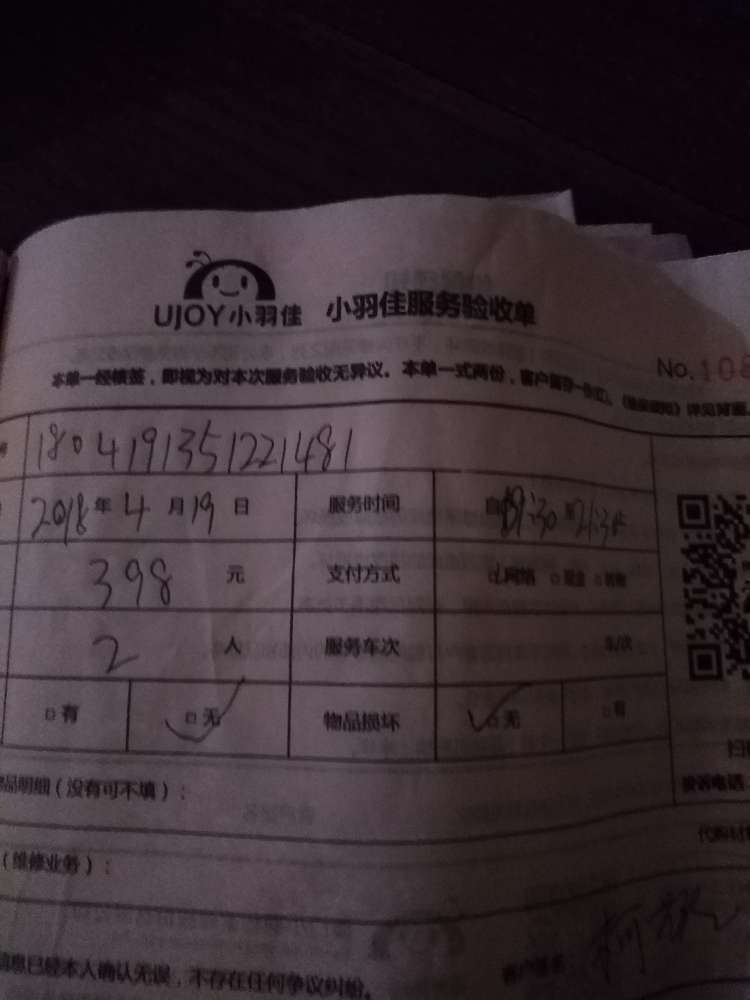 UJOY小羽佳 小羽佳服务验收单
No.108
本单一经横签，即视为对本次服务验收无异议。本单一式两份，客户留存一份 详见背面
1804191351221481
2018年4月19日 服务时间 自 19:30 至21:30
398 元 支付方式 网络 现金
2 人 服务车次 车/次
有 无 物品损坏 无 有
品明细（没有可不填）：
投诉电话：
（维修业务）：
信息已经本人确认无误，不存在任何争议纠纷。
客户签名：